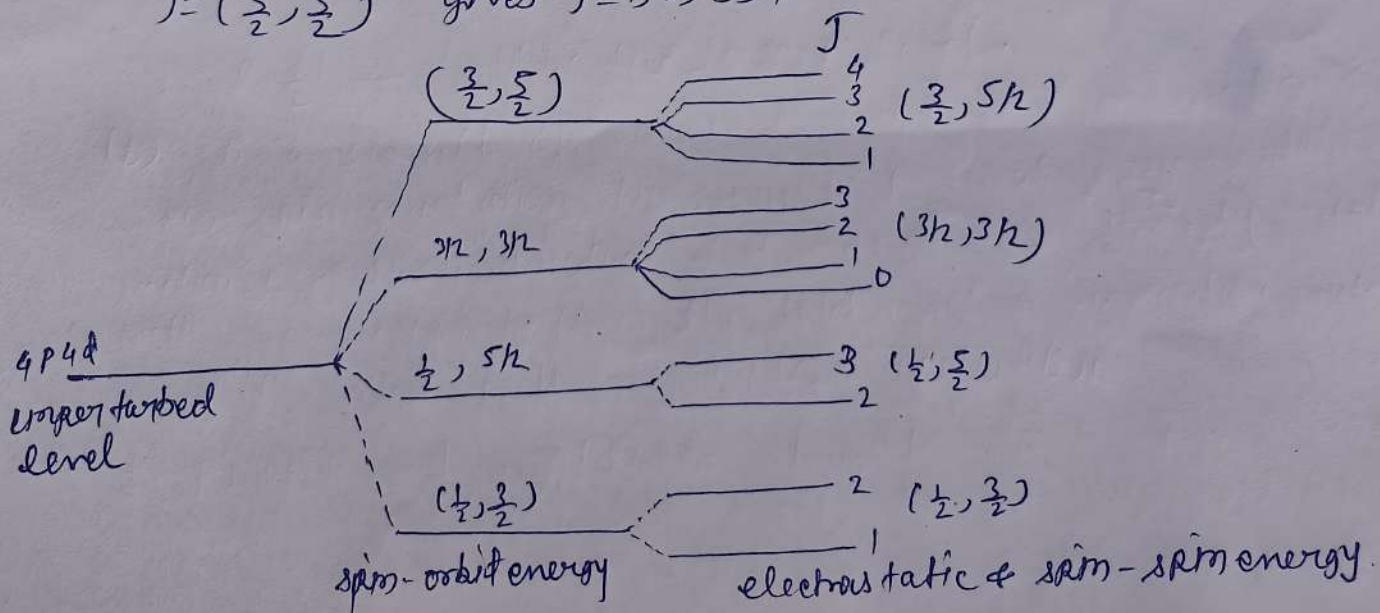 J = (3/2, 5/2) gives J = 1, 2, 3, 4
J
(3/2, 5/2)
4
3
2
1
(3/2, 5/2)
3/2, 3/2
3
2
1
0
(3/2, 3/2)
4P4d
unperturbed
level
1/2, 5/2
3
2
(1/2, 5/2)
(1/2, 3/2)
2
1
(1/2, 3/2)
spin-orbit energy
electrostatic & spin-spin energy.